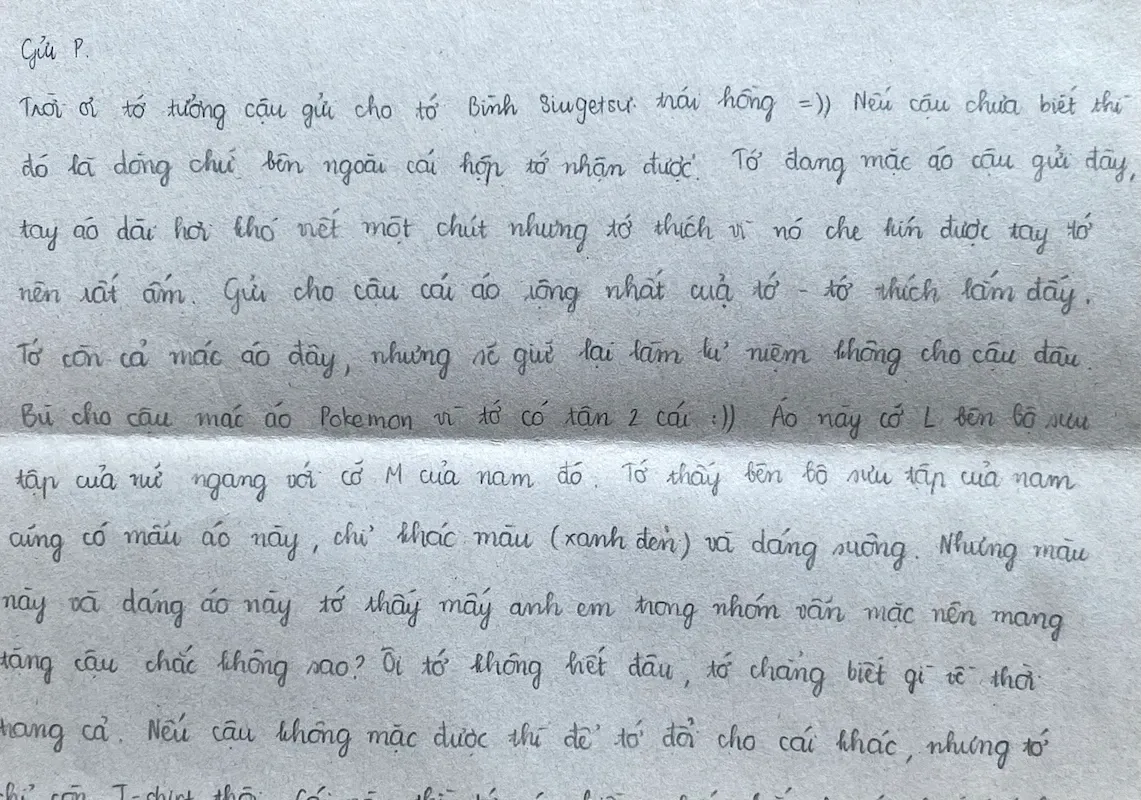 Gửi P.
Trời ơi tớ tưởng cậu gửi cho tớ Bình Siugetsu trái hồng =)) Nếu cậu chưa biết thì
đó là dòng chữ bên ngoài cái hộp tớ nhận được. Tớ đang mặc áo cậu gửi đây,
tay áo dài hơi khó viết một chút nhưng tớ thích vì nó che kín được tay tớ
nên rất ấm. Gửi cho cậu cái áo rộng nhất của tớ - tớ thích lắm đấy.
Tớ còn cả mác áo đây, nhưng sẽ giữ lại làm kỷ niệm không cho cậu đâu.
Bù cho cậu mác áo Pokemon vì tớ có tận 2 cái :)) Áo này cỡ L bên bộ sưu
tập của nữ ngang với cỡ M của nam đó. Tớ thấy bên bộ sưu tập của nam
cũng có mẫu áo này, chỉ khác màu (xanh đen) và dáng suông. Nhưng màu
này và dáng áo này tớ thấy mấy anh em trong nhóm vẫn mặc nên mang
tặng cậu chắc không sao? Ôi tớ không biết đâu, tớ chẳng biết gì về thời
trang cả. Nếu cậu không mặc được thì để tớ đổi cho cái khác, nhưng tớ
chỉ còn T-shirt thôi.